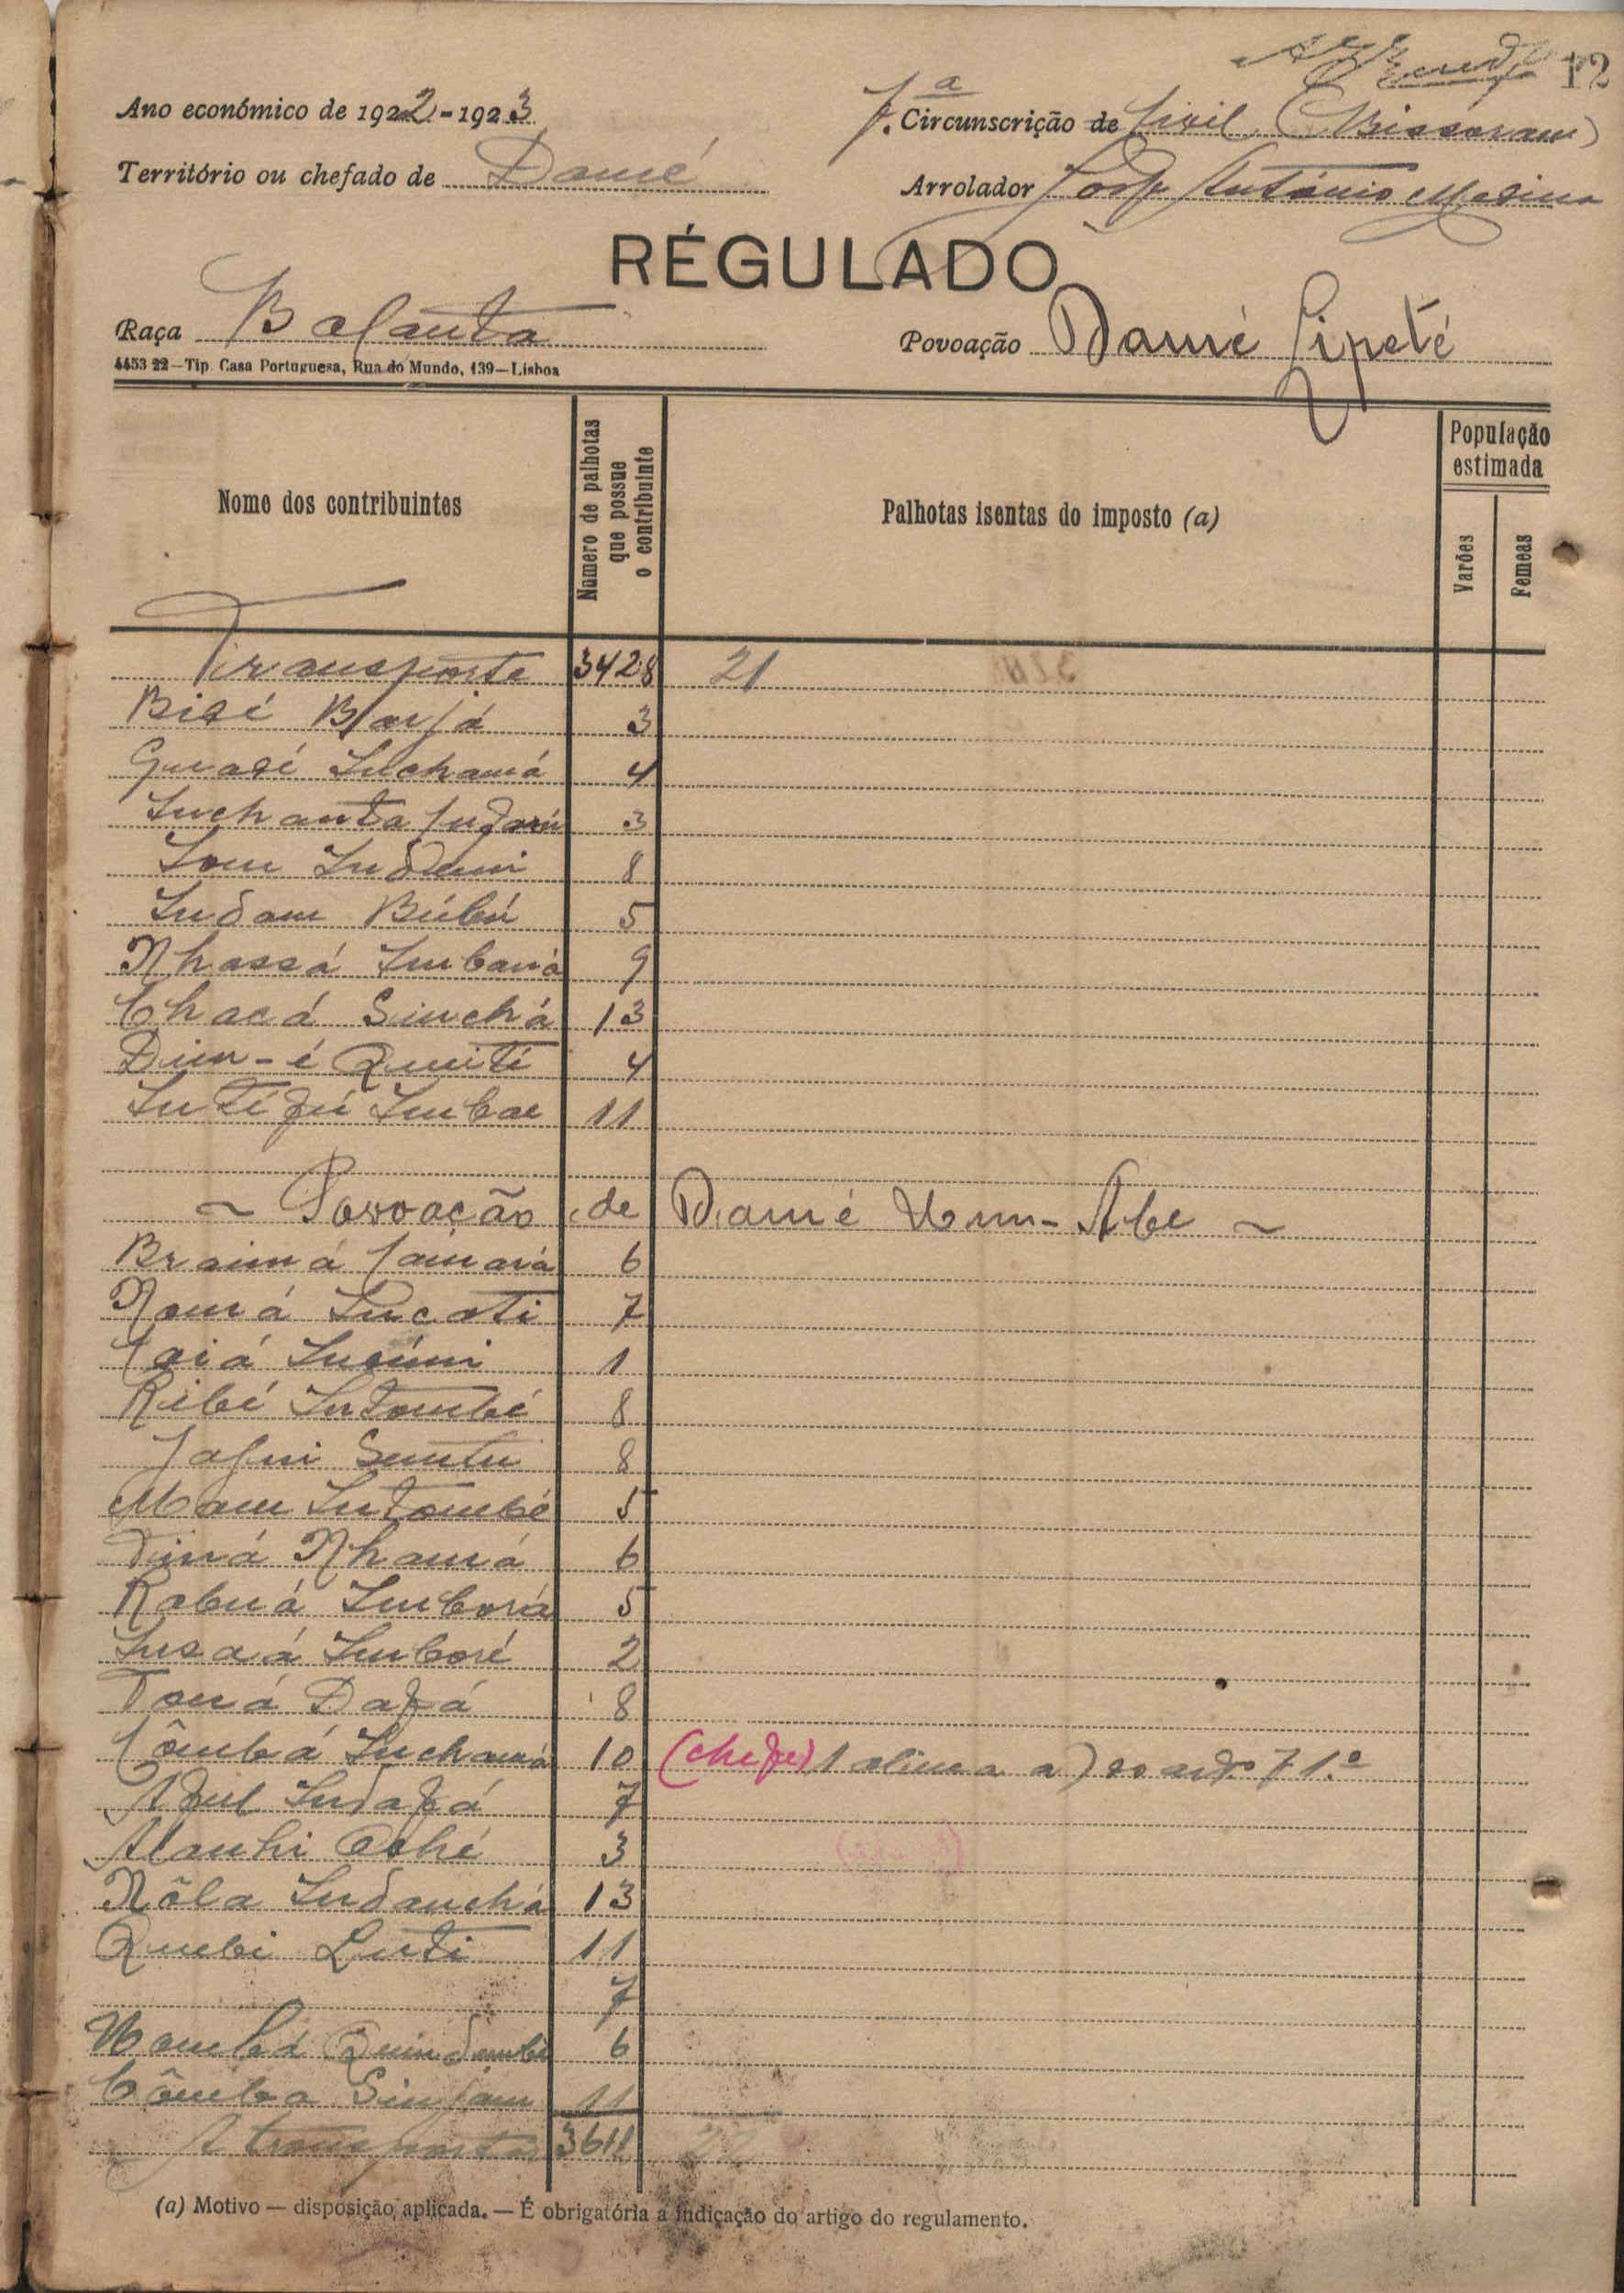 12
Ano económico de 1922-1923
7.ª Circunscrição de Civil (Bissoram)
Território ou chefado de Damé
Arrolador José António Medina
RÉGULADO
Raça Balanta
Povoação Damé Lipeté
4453 22—Tip. Casa Portuguesa, Rua do Mundo, 139—Lisboa
Nome dos contribuintes
Número de palhotas que possue o contribuinte
Palhotas isentas do imposto (a)
População estimada
Varões
Femeas
Transporte 3428 21
Bisé Barjá 3
Guasé Inchamá 4
Inchanta 3
Som Indami 8
Indam Búbú 5
Nhassá Imbaná 9
Chacá Sinchá 13
Dim-é Quiti 4
Intéfú Imbae 11
~ Povoação de Damé Num-Abe ~
Braimá Camará 6
Namá Incati 7
1
Ribé Intombé 8
Jafui 8
Mam Intombé 5
Tiná Nhamá 6
Rabuá Imborá 5
Insaá Imboré 2
Toná Dafá 8
Cômbá Inchamá 10 (chefe) 1 alinea a) do art.º 71.º
Aful Indafá 7
3
Nôla Indanchá 13
Quebi Luti 11
7
Quindumbi 6
Cômba Sinjam 11
A transportar 3611 22
(a) Motivo — disposição aplicada. — É obrigatória a indicação do artigo do regulamento.